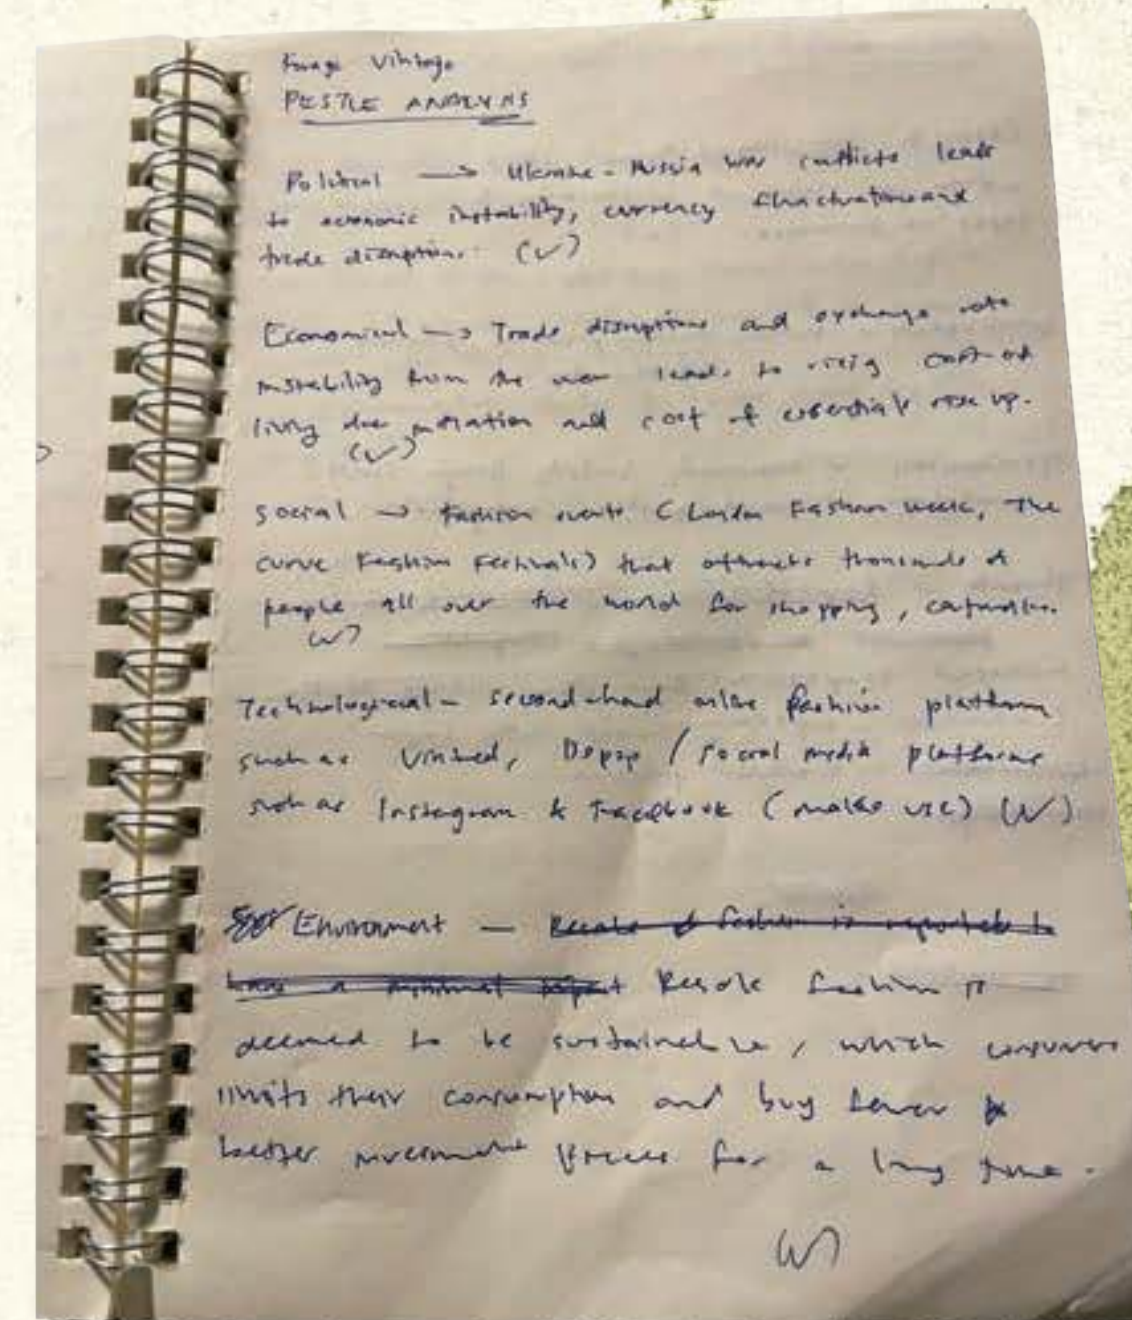 Vintage
PESTLE ANALYSIS
Political → Ukraine - Russia war conflicts leads
to economic instability, currency fluctuations and
trade disruption. (✓)
Economical → Trade disruptions and exchange rate
instability from the war leads to rising cost of
living due inflation and cost of essentials rise up.
(✓)
Social → Fashion events (London Fashion Week, The
curve Fashion Festivals) that attracts thousands of
people all over the world for shopping,
(✓)
Technological - second-hand online fashion platform
such as Vinted, Depop / social media platforms
such as Instagram & Facebook (makes use) (✓)
Environment - Resale of fashion is reported to
have a minimal impact Resale fashion is
deemed to be sustainable, which consumers
limits their consumption and buy fewer &
better investment pieces for a long time.
(✓)